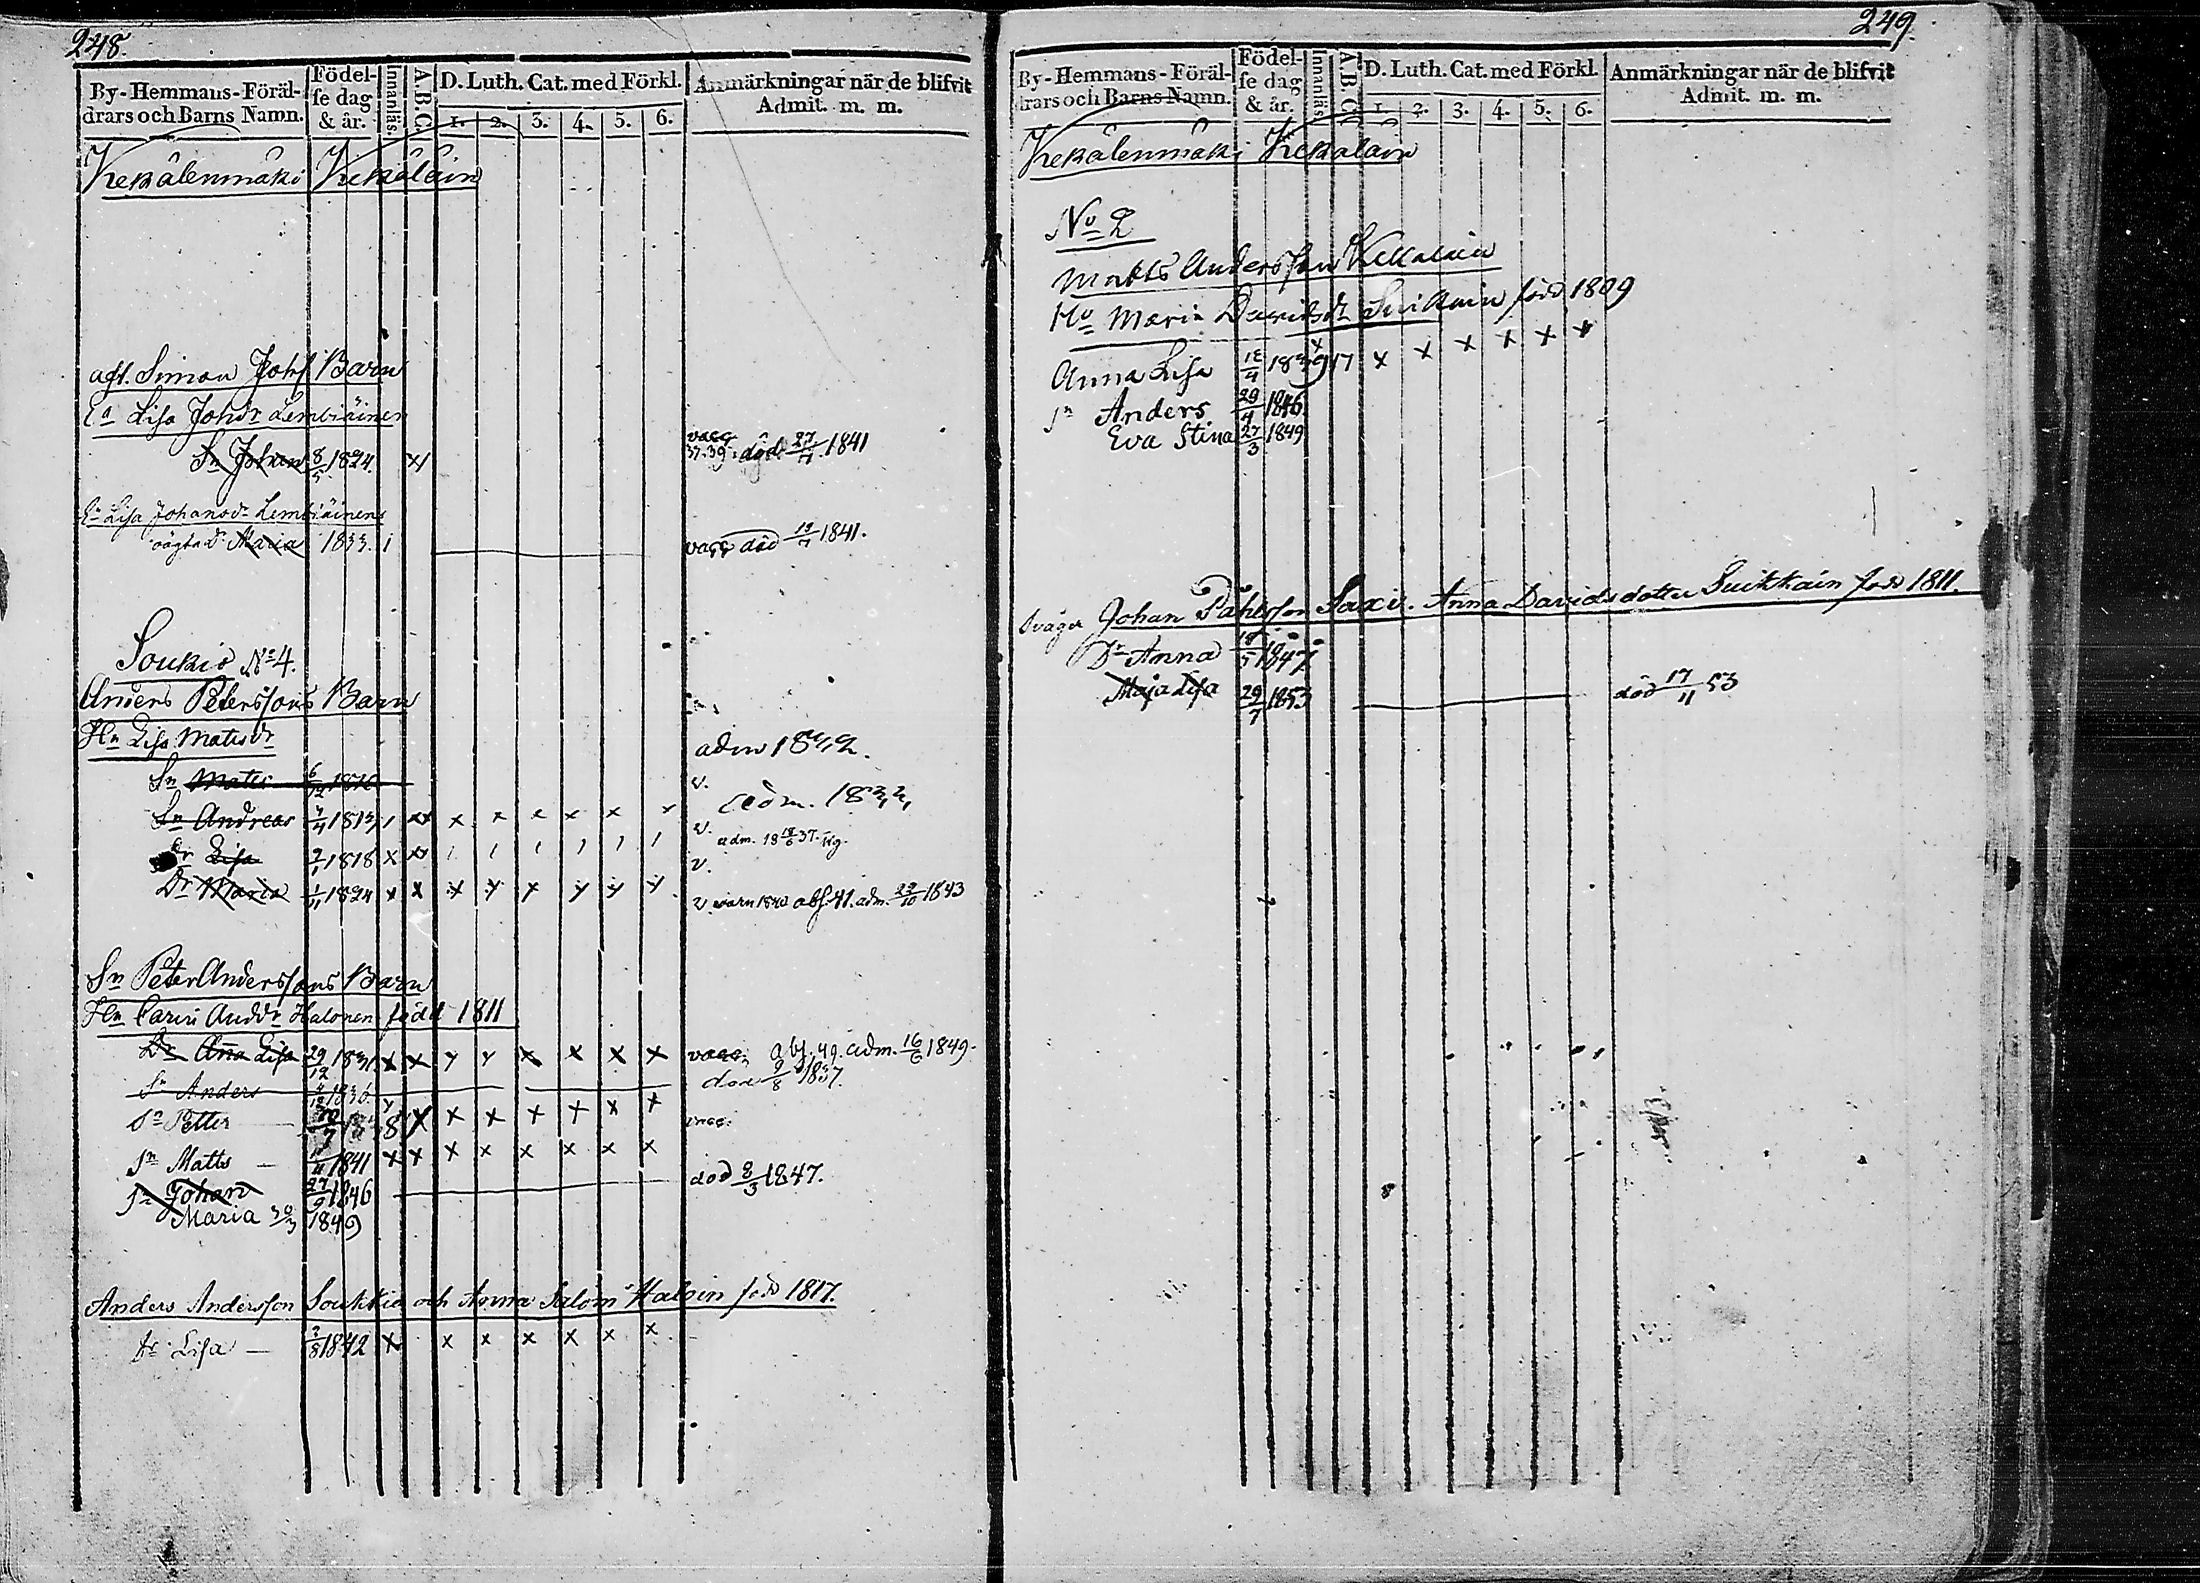 248.
By-Hemmans-Föräl-
drars och Barns Namn.
Födel-
se dag
& år.
Innanläs.
A.B.C.
D. Luth. Cat. med Förkl.
1. 2. 3. 4. 5. 6.
Anmärkningar när de blifvit
Admit. m. m.
Kekälenmäki Kekäläin
afl. Simon Johs Barn
Ea Lisa Johdr Lembiäinen
Sn Johan 8/5 1824. x1 vacc 37.39. död 27/7. 1841
En Lisa Johansdr Lembiäinens
oägta Dr Maria 1833. 1 vacc död 19/7 1841.
Soukio No 4.
Anders Peterssons Barn
Hn Lisa Matsdr
adm 1842.
Sn Matts 6/12 v.
adm.
Sn Andreas 7/4 x x x x x x v.
adm. 18 18/6 37. vig.
Dr Lisa 9/1 1818 x xx 1 1 1 1 1 1 v.
Dr Maria 1/11 1824 x x x y x y y y v. abs. 41. adm. 22/10 1843
Sn Peter Anderssons Barn
Hn Carin Anddr Halonen född 1811
Dr Anna Lisa 29/12 1831 x x y y x x x x vacc. abs. 49. adm. 16/6 1849.
Sn Anders 1836 död 9/8 1837.
Sn Petter x x x + + x + vacc.
Sn Matts 1841 x x x x x x x x
Sn Johan 27/9 1846 död 8/3 1847.
Maria 30/3 1849
Anders Andersson Soukkio och Anna Salom Haloin född 1817.
dr Lisa 2/8 1842 x x x x x x x
249.
By-Hemmans-Föräl-
drars och Barns Namn.
Födel-
se dag
& år.
Innanläs.
A.B.C.
D. Luth. Cat. med Förkl.
1. 2. 3. 4. 5. 6.
Anmärkningar när de blifvit
Admit. m. m.
Kekälenmäki Kekäläin
No 2
Matts Andersson Kekäläin
Hu Maria Davidsdr Suikkain född 1809
Anna Lisa 12/4 1839 x x x x x x
Sn Anders 29/4 1846.
Eva Stina 27/3 1849
Svåger Johan Påhlsson Saxi. Anna Davidsdotter Suikkain född 1811.
Dr Anna 1847
Maja Lisa 29/7 1853 död 17/11 53